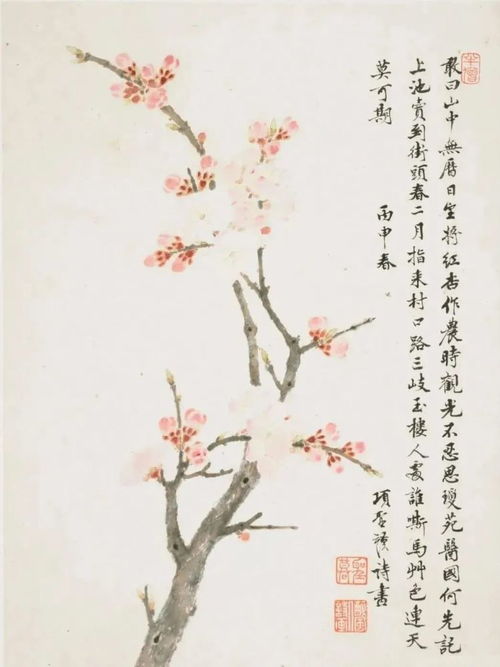 敢曰山中無曆日將紅杏作農時觀光不忍思瓊苑醫國何先記
上池賣到街頭春二月指來村口路三岐玉樓人處誰嘶馬艸色連天
莫可期 丙申春 項聖謨詩書